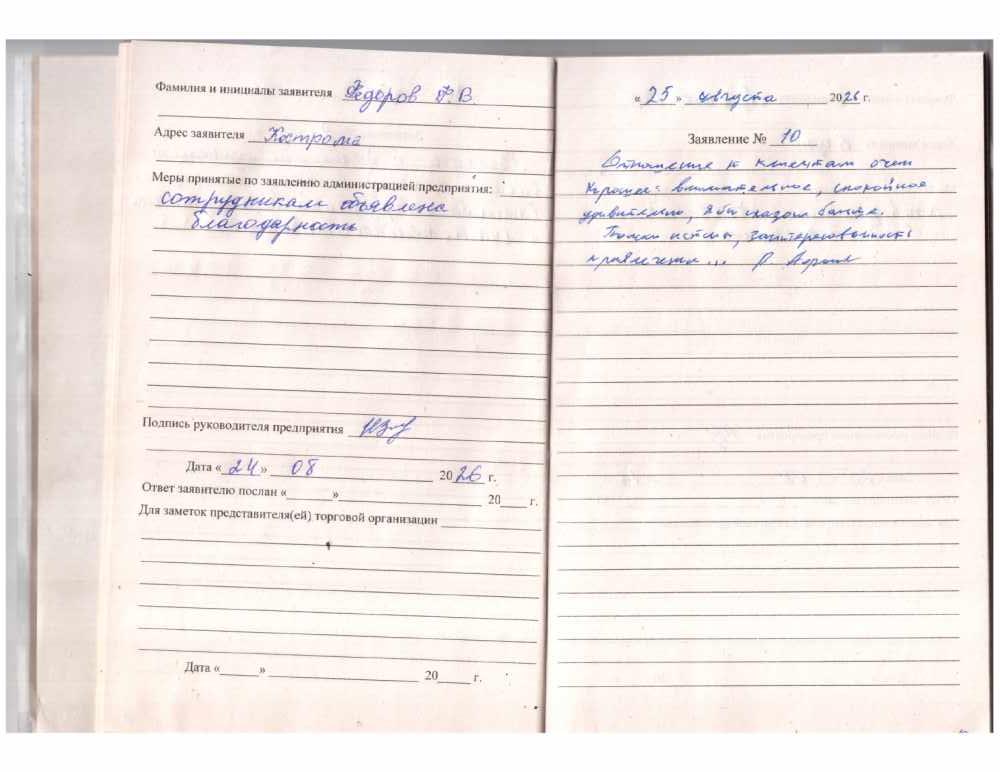 Фамилия и инициалы заявителя Федоров Р.В.
Адрес заявителя Кострома
Меры принятые по заявлению администрацией предприятия:
сотрудникам объявлена
благодарность
Подпись руководителя предприятия
Дата « 24 » 08 2026 г.
Ответ заявителю послан « » 20 г.
Для заметок представителя(ей) торговой организации
Дата « » 20 г.
« 25 » августа 2026 г.
Заявление № 10
Отношение к клиентам очень
хорошее: внимательное, спокойное
удивительно, я бы сказал больше.
заинтересованность